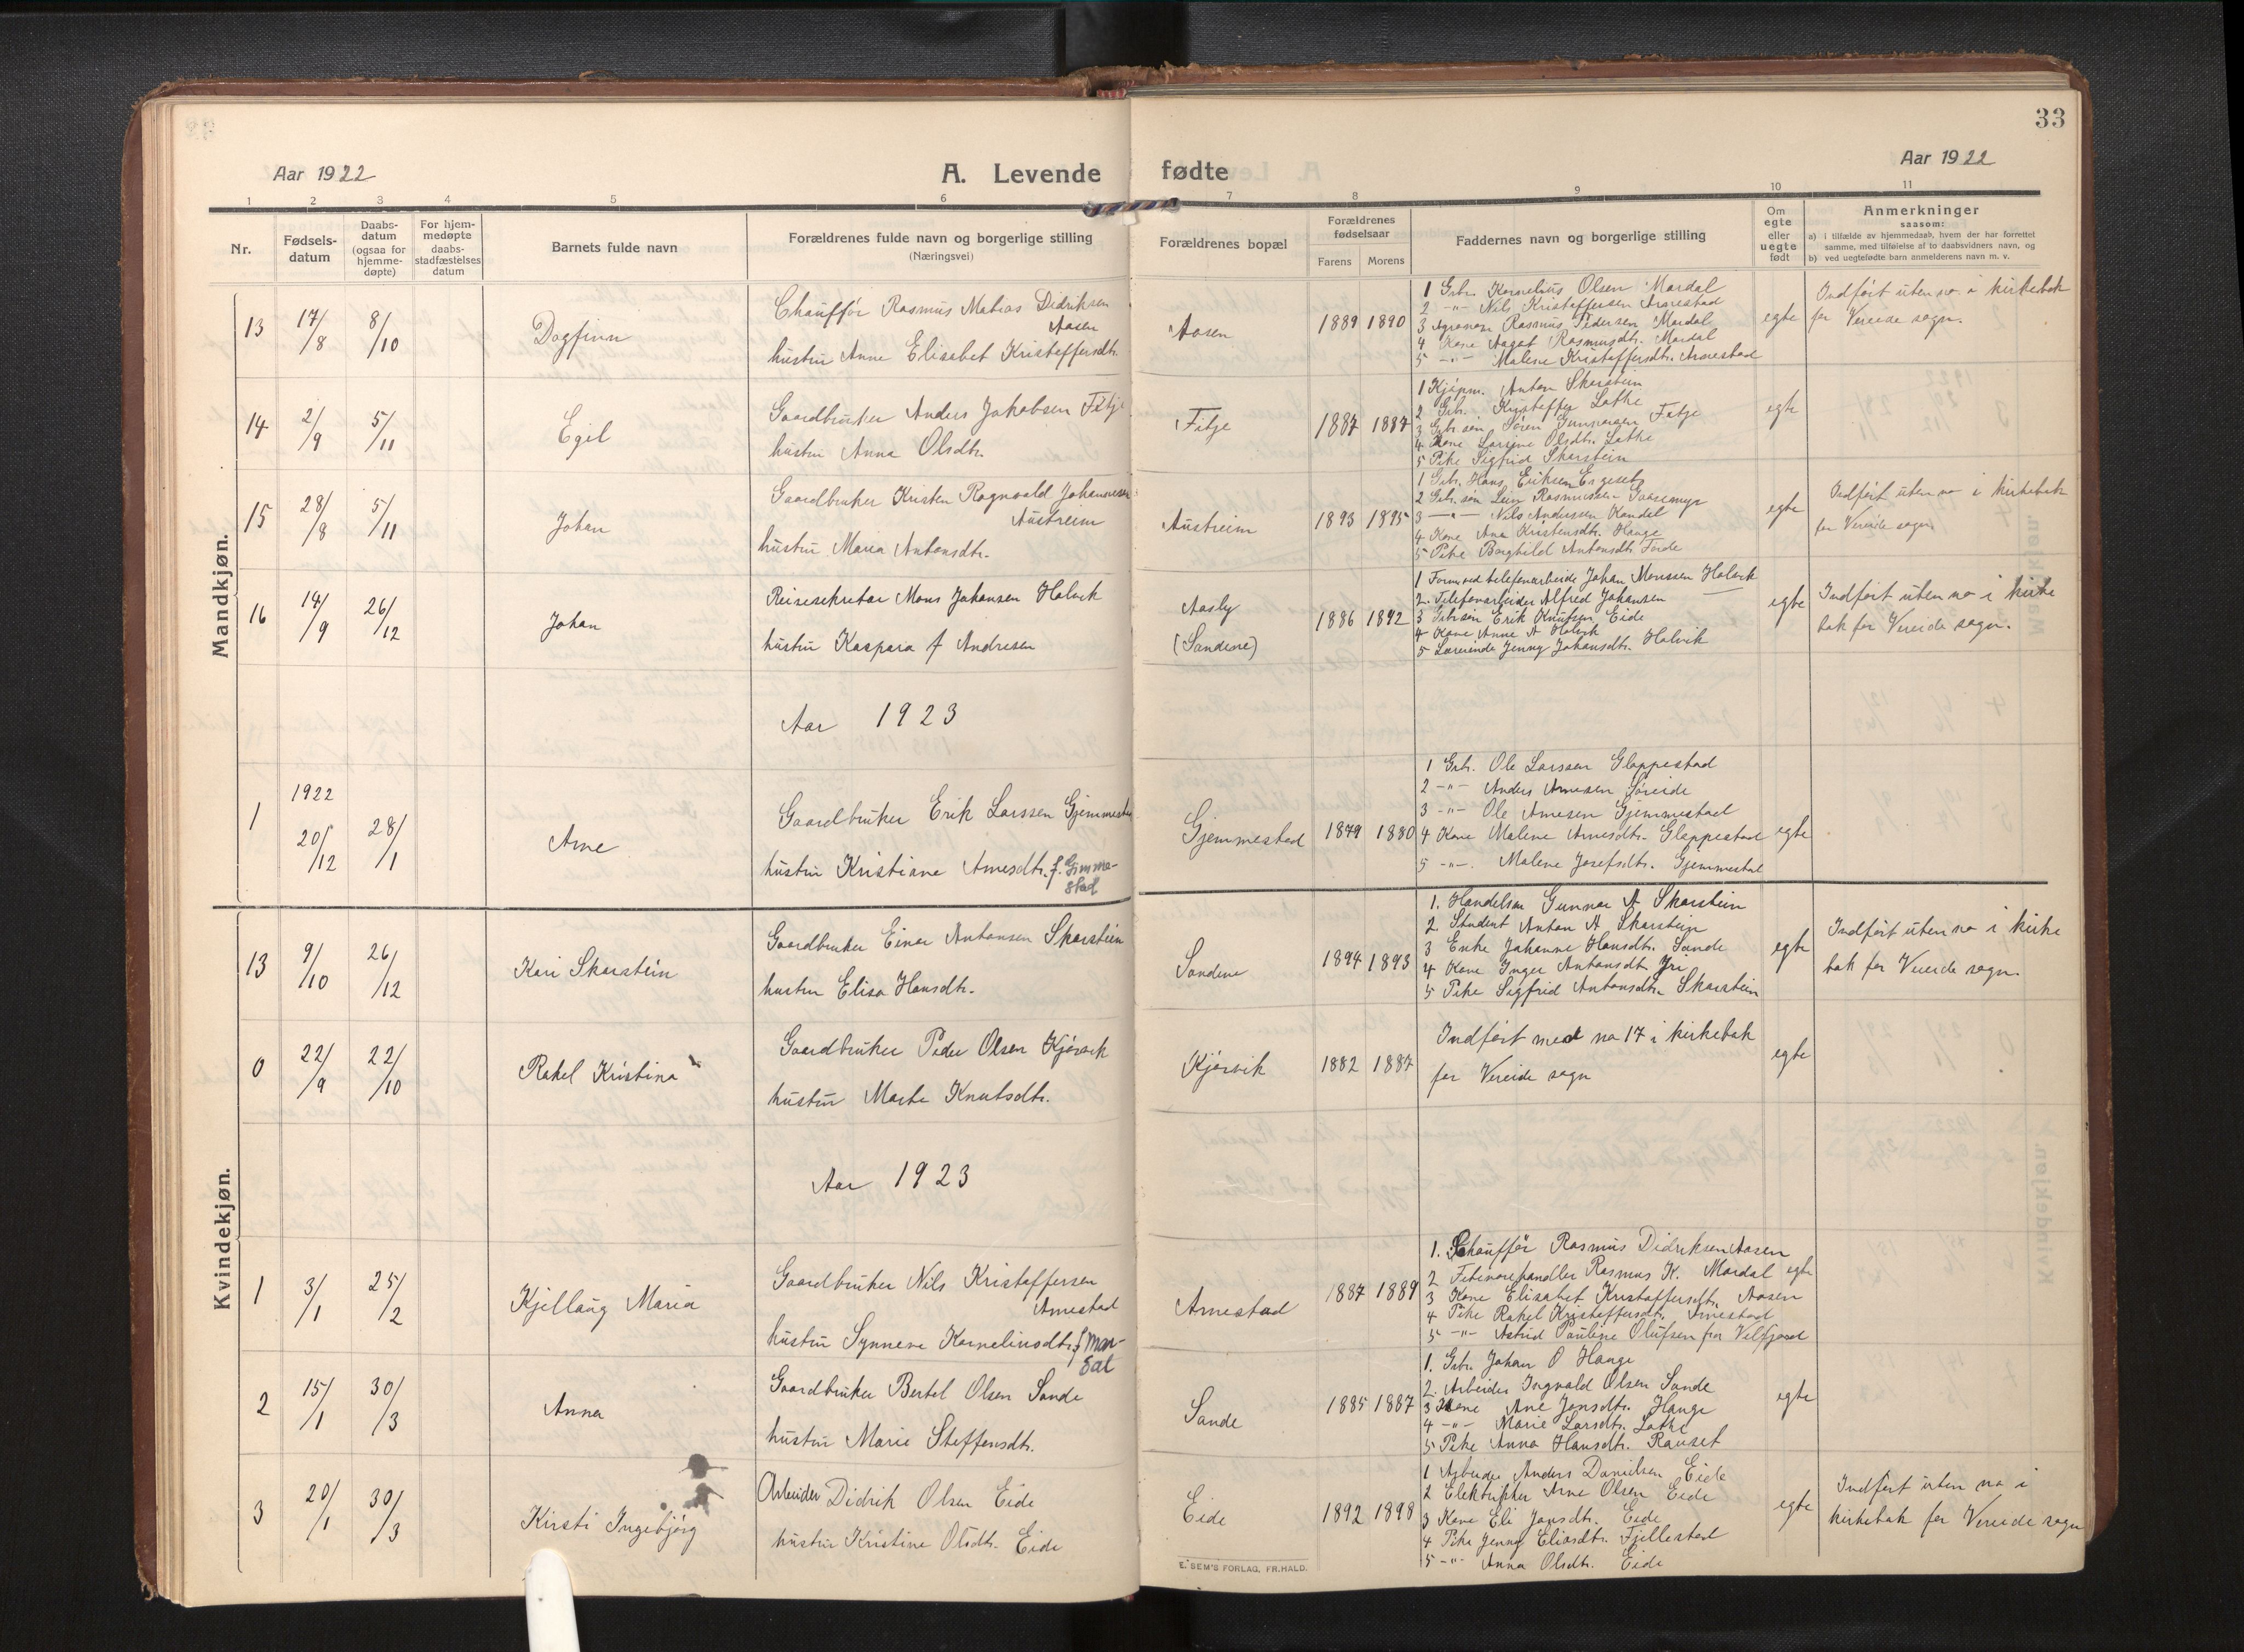 33
Aar 1922
A. Levende fødte
Aar 1922
1 2 3 4 5 6 7 8 9 10 11
Nr.
Fødsels-
datum
Daabs-
datum
(ogsaa for
hjemme-
døpte)
For hjem-
medøpte
daabs-
stadfæstelses
datum
Barnets fulde navn
Forældrenes fulde navn og borgerlige stilling
(Næringsvei)
Forældrenes bopæl
Forældrenes
fødselsaar
Farens Morens
Faddernes navn og borgerlige stilling
Om
egte
eller
uegte
født
Anmerkninger
saasom:
a) i tilfælde av hjemmedaab, hvem der har forrettet
samme, med tilføielse af to daabsvidners navn, og
b) ved uegtefødte barn anmelderens navn m. v.
Mandkjøn.
13 17/8 8/10 Dagfinn
Chauffør Rasmus Matias Didriksen
Aasen
hustru Anne Elisabet Kristoffersdtr.
Aasen 1889 1890
1 Grbr. Kornelius Olsen Mardal
2 -"- Nils Kristoffersen Arnestad
3 Agronom Rasmus Pedersen Mardal
4 Kone Aagot Rasmusdtr. Mardal
5 -"- Malene Kristoffersdtr. Arnestad
egte
Indført uten no i kirkebok
for Vereide sogn.
14 2/9 5/11 Egil
Gaardbruker Anders Jakobsen Fitje
hustru Anna Olsdtr.
Fitje 1887 1887
1 Kjøpm. Anton Skarstein
2 Grbr. Kristoffer Lothe
3 Grbr. søn Søren Gunnarsen Fitje
4 Kone Larsine Olsdtr. Lothe
5 Pike Sigfrid Skarstein
egte
15 28/8 5/11 Johan
Gaardbruker Kristen Ragnvald Johannessen
Austreim
hustru Maria Antonsdtr.
Austreim 1893 1895
1 Grbr. Hans Eriksen Engeset
2 Grbr. søn Rasmussen
3 -"- Nils Andersen Kandal
4 Kone Ana Kristensdtr. Hauge
5 Pike Borghild Antonsdtr. Førde
egte
Indført uten no i kirkebok
for Vereide sogn.
16 14/9 26/12 Johan
Reisesekretær Mons Johansen Holvik
hustru Kaspara f Andresen
Aasly
(Sandene)
1886 1892
1 Form. ved telefonarbeide Johan Monssen Holvik
2. Telefonarbeider Alfred Johansen
3 Grbr søn Erik Knutsen Eide
4 Kone Anne A Holvik
5 Lærerinde Jenny Johansdtr. Holvik
egte
Indført uten no i kirke
bok for Vereide sogn.
Aar 1923
1 1922
20/12 28/1 Arne
Gaardbruker Erik Larssen Gjemmestad
hustru Kristiane Arnesdtr. f. Gimme-
stad
Gjemmestad 1879 1880
1 Grbr. Ole Larssen Gloppestad
2 -"- Anders Arnesen Søreide
3 -"- Ole Arnesen Gjemmestad
4 Kone Malene Arnesdtr. Gloppestad
5 -"- Malene Josefsdtr. Gjemmestad
egte
Kvindekjøn.
13 9/10 26/12 Kari Skarstein
Gaardbruker Einar Antonsen Skarstein
hustru Elisa Hansdtr.
Sandene 1894 1893
1. Handelsm Gunnar A Skarstein
2 Student Anton A Skarstein
3 Enke Johanne Hansdtr. Sande
4 Kone Inger Antonsdtr Yri
5 Pike Sigfrid Antonsdtr. Skarstein
egte
Indført uten no i kirke
bok for Vereide sogn.
0 22/9 22/10 Rakel Kristina
Gaardbruker Peder Olsen Kjørvik
hustru Marte Knutsdtr.
Kjørvik 1882 1887
Indført med no 17 i kirkebok
for Vereide sogn
egte
Aar 1923
1 3/1 25/2 Kjellaug Maria
Gaardbruker Nils Kristoffersen
Arnestad
hustru Synneve Korneliusdtr. f Mar-
dal
Arnestad 1887 1889
1. Chauffør Rasmus Didriksen Aasen
2 Fetevarehandler Rasmus K. Mardal
3 Kone Elisabet Kristoffersdtr. Aasen
4 Pike Rakel Kristoffersdtr. Arnestad
5 -"- Astrid Pauline Olufsen fra Velfjord
egte
2 15/1 30/3 Anna
Gaardbruker Bertel Olsen Sande
hustru Marie Steffensdtr.
Sande 1885 1887
1. Grbr. Johan O Hauge
2. Arbeider Ingvald Olsen Sande
3 Kone Ane Jonsdtr. Hauge
4 -"- Marie Larsdtr. Lothe
5 Pike Anna Hansdtr. Rauset
egte
3 20/1 30/3 Kirsti Ingebjørg
Arbeider Didrik Olsen Eide
hustru Kristine Olsdtr. Eide
Eide 1892 1898
1 Arbeider Anders Danielsen Eide
2 Elektriker Arne Olsen Eide
3 Kone Eli Jonsdtr. Eide
4 Pike Jenny Eliasdtr. Fjellestad
5 -"- Anna Olsdtr. Eide
egte
Indført uten no i
kirkebok for Vereide sogn
E. SEM'S FORLAG, FR.HALD.